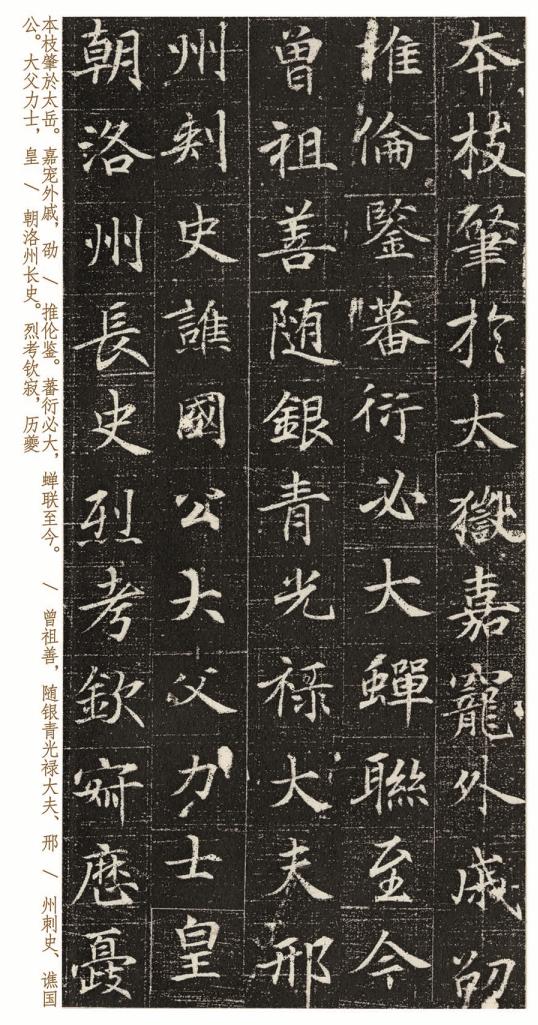 夲枝肇於太嶽嘉寵外戚劭
推倫鑒蕃衍必大蟬聯至今
曾祖善随銀青光祿大夫邢
州刺史譙國公大父力士皇
朝洛州長史烈考欽寂歷夔
本枝肇於太岳。嘉宠外戚，劭 / 推伦鉴。蕃衍必大，蝉联至今。 / 曾祖善，随银青光禄大夫、邢 / 州刺史、谯国
公。大父力士，皇 / 朝洛州长史。烈考钦寂，历夔